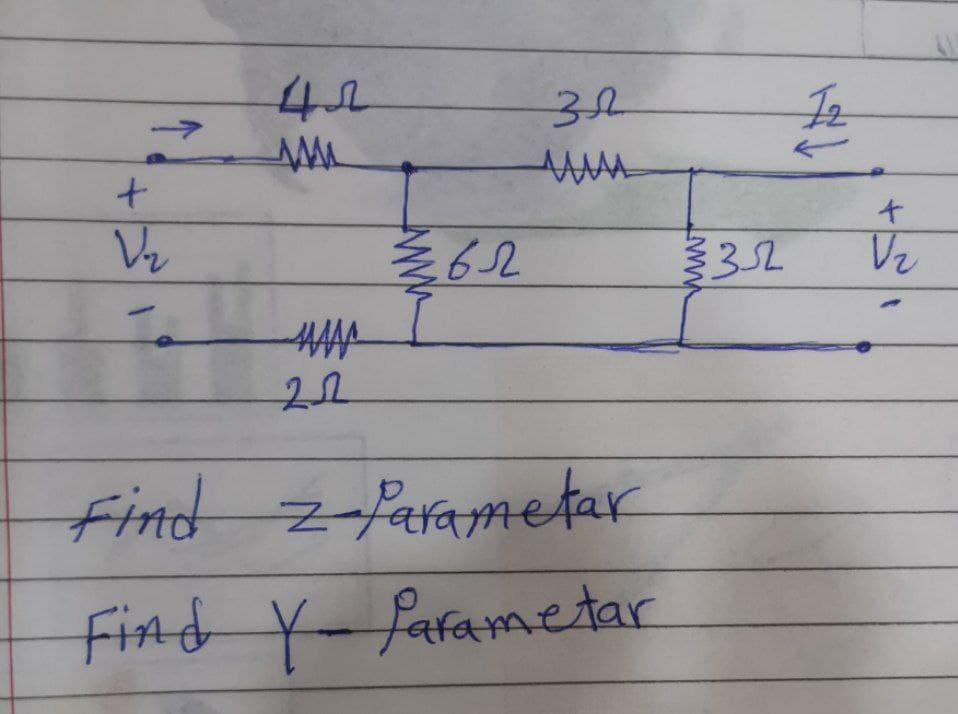 4Ω 3Ω I2
→ ←
+ +
V2 6Ω 3Ω V2
- -
2Ω
Find z-Parametar
Find Y-Parametar